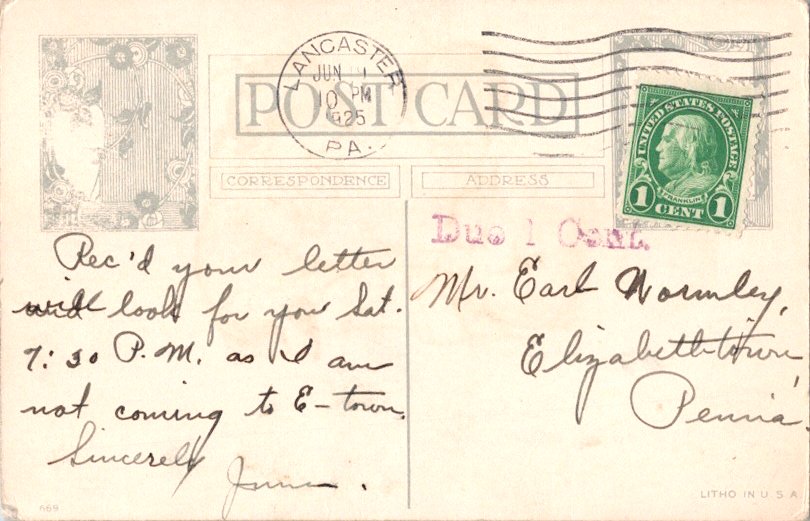 LANCASTER
JUN
10 PM
1925
PA.
POST CARD
CORRESPONDENCE
ADDRESS
UNITED STATES POSTAGE
FRANKLIN
1 CENT 1
Due 1 Cent.
Rec'd your letter
will look for you Sat.
7:30 P.M. as I am
not coming to E-town.
Sincerely
Mr. Earl Wormley,
Elizabethtown,
Penna.
669
LITHO IN U.S.A.